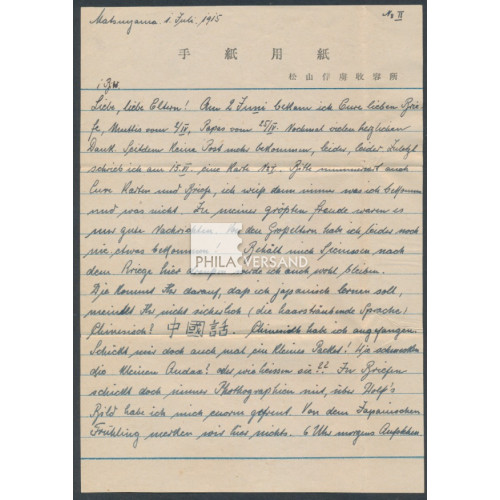 Matsuyama 1. Juli. 1915
No II
手紙用紙
松山俘虜收容所
Liebe, liebe Eltern! Am 2 Juni bekam ich Eure lieben Brie-
fe, Mutter vom 2/IV, Papas vom 25/IV. Nochmal vielen herzlichen
Dank. Seitdem keine Post mehr bekommen, leider, leider. Zuletzt
schrieb ich am 15.VI eine Karte No I. Bitte nummeriert auch
Eure Karten und Briefe, ich weiß dann immer was ich bekommen
und was nicht. Zu meiner größten Freude waren es
nur gute Nachrichten. Von den Großeltern habe ich leider noch
nie etwas bekommen! Behält mich Siemssen nach
dem Kriege hier werde ich auch wohl bleiben.
Wie kommt Ihr darauf, daß ich japanisch lernen soll,
meintet Ihr nicht sicherlich (die haarsträubende Sprache)
Chinesisch! 中國話. Chinesisch habe ich angefangen.
Schickt mir doch auch mal ein kleines Packet! Wie
die kleinen oder wie heissen sie?? In Briefen
schickt doch immer Photographien mit, über Rolf's
Bild habe ich mich enorm gefreut. Von dem Japanischen
Frühling merken wir hier nichts. 6 Uhr morgens Aufstehen
PHILA VERSAND